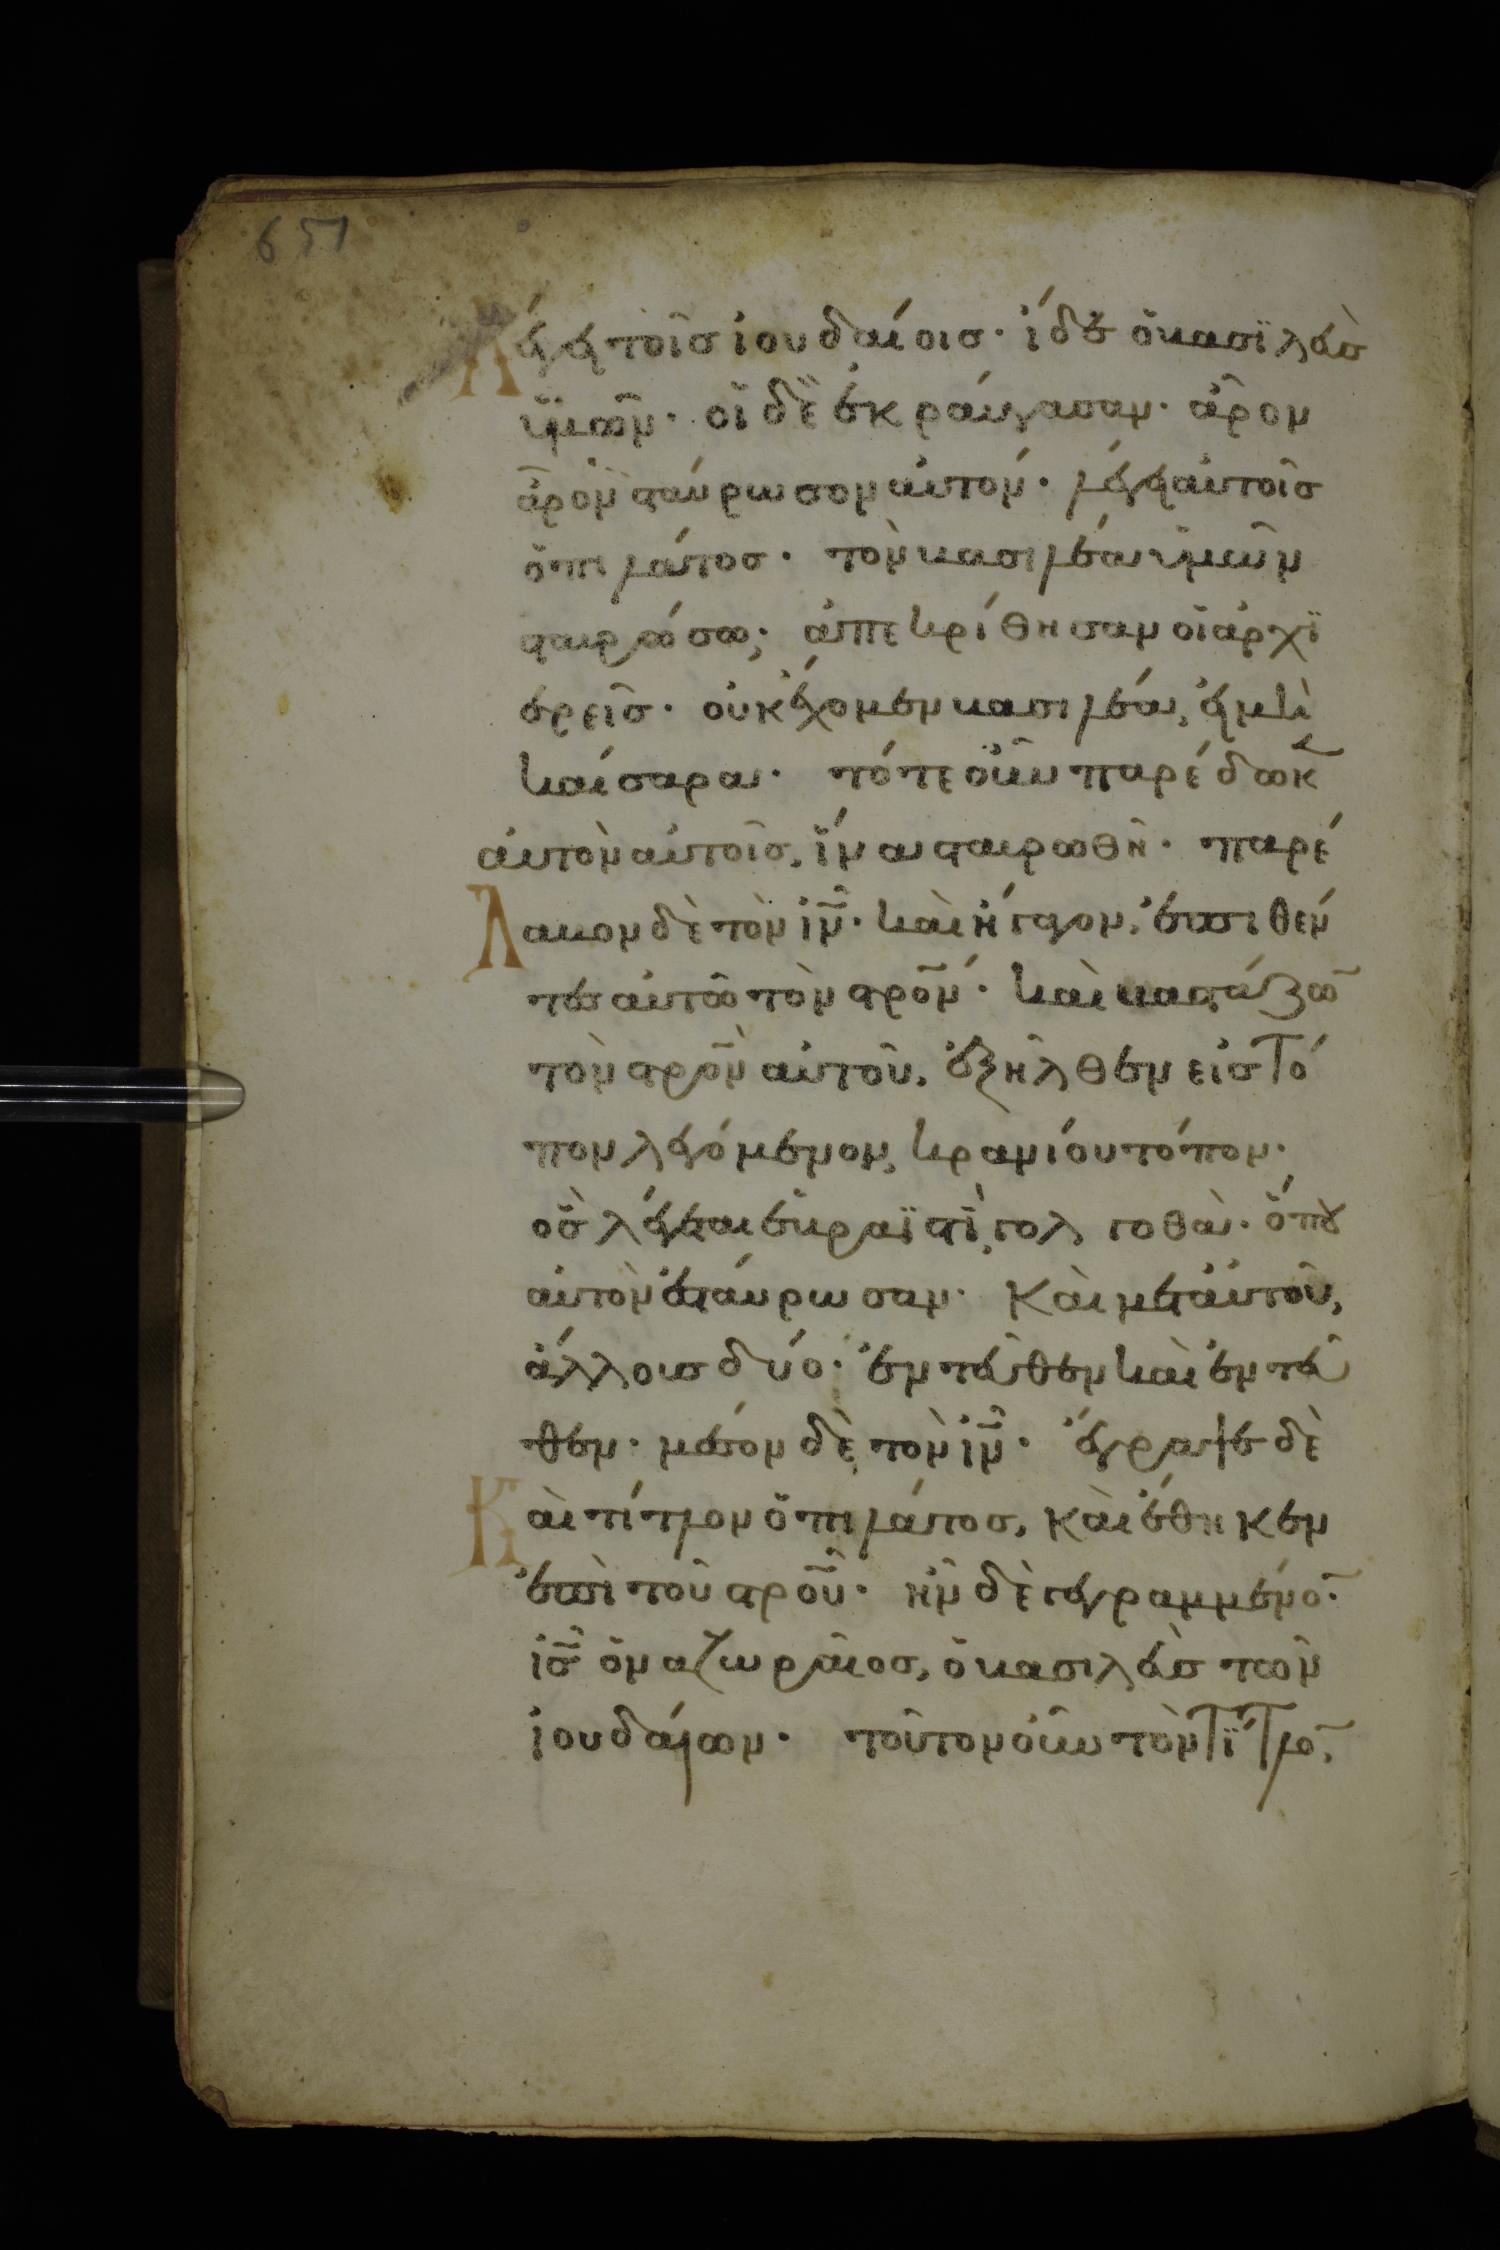 651
Λέγει τοῖσ ἰουδαίοισ· ἰδοὺ ὁ βασϊλεὺσ
ὑμῶν· οἱ δὲ ἐκράυγασαν· ἆρον
ἆρον σταύρωσον ἀυτόν· λέγει ἀυτοῖσ
ὁ πιλάτοσ· τὸν βασιλέα ὑμῶν
σταυρώσω; ἀπεκρίθησαν οἱ ἀρχϊ
ερεῖσ· οὐκ ἔχομεν βασιλέα, εἰ μὴ
καίσαρα· τότε οὖν παρέδωκ
ἀυτὸν ἀυτοῖσ, ἵνα σταυρωθῆ· παρέ
Λαβον δὲ τὸν ἰν̅· καὶ ἤγαγον, ἐπιθέν
τεσ ἀυτῶ τὸν στρο̅ν· καὶ βαστάζω̅
τὸν στρο̅ν ἀυτοῦ, ἐξῆλθεν εἰσ τό
πον λεγόμενον, κρανίου τόπον·
ὃσ λέγεται ἑβραϊστὶ, γολγοθὰ· ὅπου
ἀυτὸν ἐσταύρωσαν· Καὶ μετ' ἀυτοῦ,
ἄλλουσ δύο· ἐντεῦθεν καὶ ἐντεῦ
θεν· μέσον δὲ τὸν ἰν̅· ἔγραψε δὲ
Καὶ τίτλον ὁ πιλάτοσ, καὶ ἔθηκεν
ἐπὶ τοῦ στρο̅υ· ἦν δὲ γεγραμμένο̅·
ἰσ̅ ὁ ναζωραῖοσ, ὁ βασιλεὺσ τῶν
ἰουδαίων· τοῦτον οὖν τὸν τϊτλο̅,